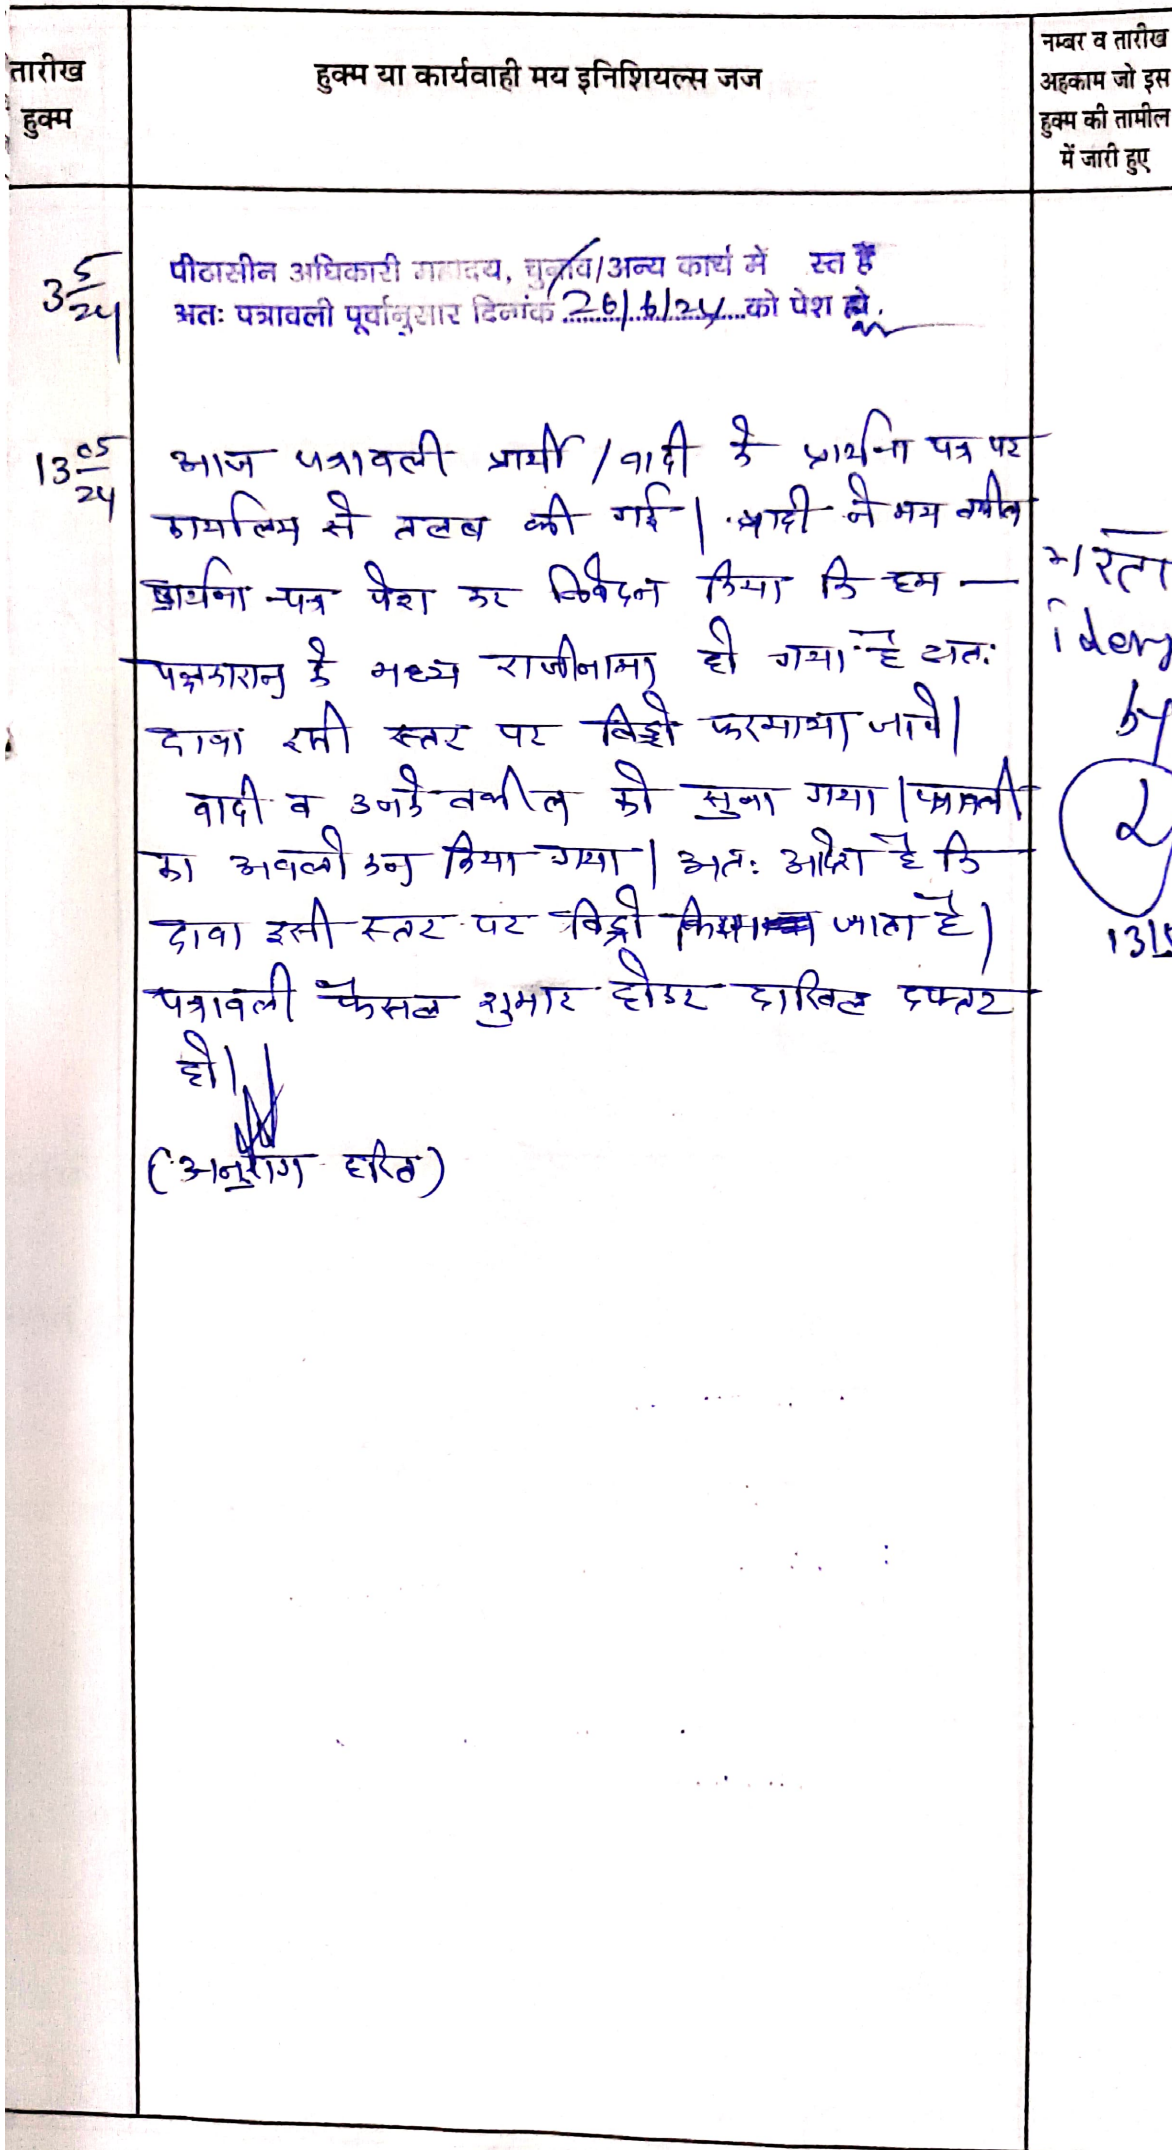 तारीख
हुक्म
हुक्म या कार्यवाही मय इनिशियल्स जज
नम्बर व तारीख
अहकाम जो इस
हुक्म की तामील
में जारी हुए
3 5/24
पीठासीन अधिकारी महोदय, चुनाव/अन्य कार्य में स्त हैं
अतः पत्रावली पूर्वानुसार दिनांक 26/6/24 को पेश हो.
13 05/24
आज पत्रावली प्रार्थी/वादी के प्रार्थना पत्र पर
कार्यालय से तलब की गई। वादी ने मय वकील
प्रार्थना पत्र पेश कर निवेदन किया कि हम —
पक्षकारान् के मध्य राजीनामा हो गया है अतः
दावा इसी स्तर पर विड्रो फरमाया जावे।
वादी व उनके वकील को सुना गया। पत्रावली
का अवलोकन किया गया। अतः आदेश है कि
दावा इसी स्तर पर विड्रो किया जाता है।
पत्रावली फैसल शुमार होकर दाखिल दफ्तर
हो।
(अनुराग हरित)
iden
by
13/5